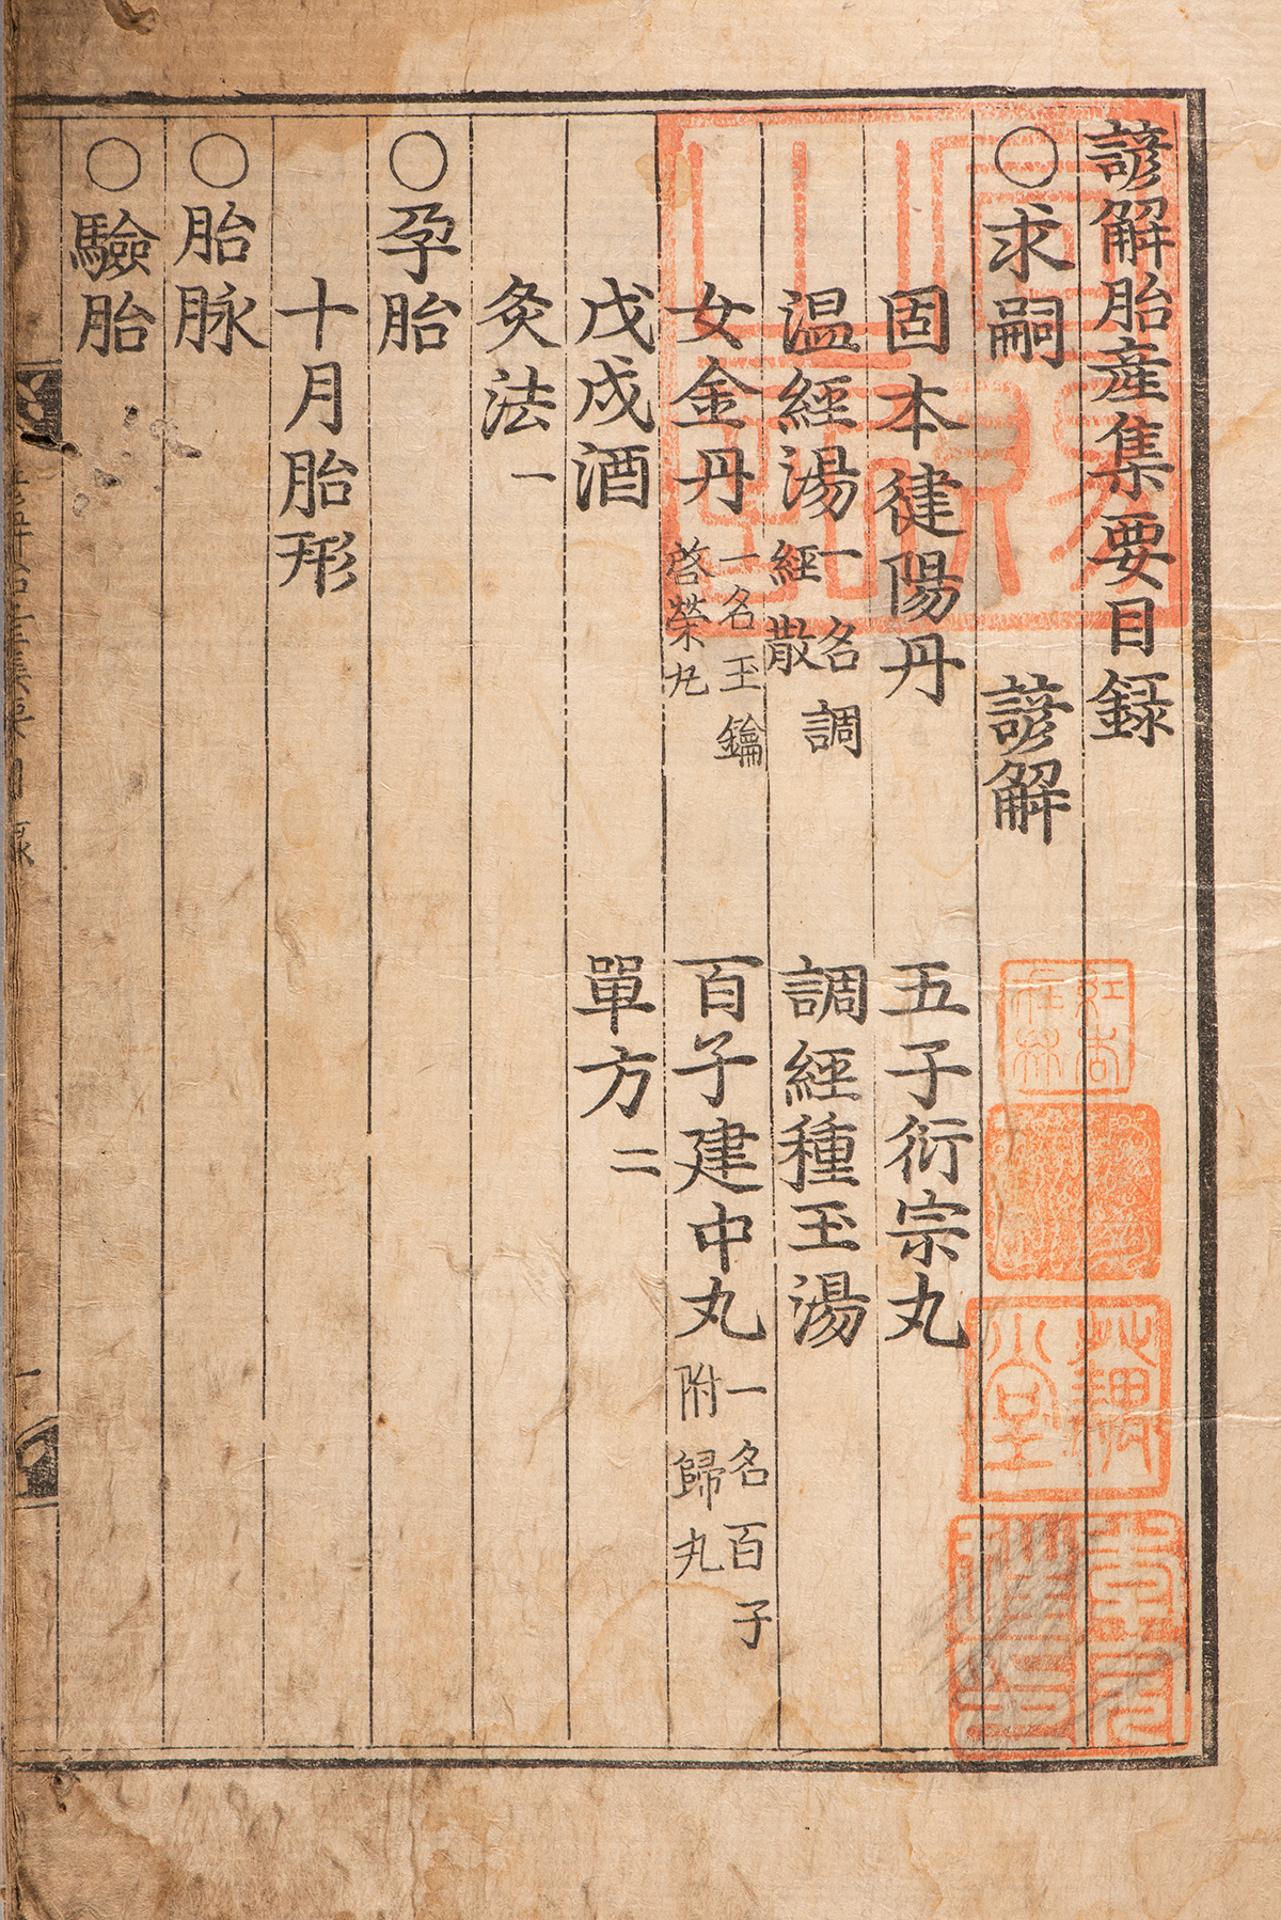 諺解胎産集要目録
○求嗣 諺解
固本健陽丹 五子衍宗丸
温經湯 一名調經散 調經種玉湯
女金丹 一名玉鑰啓榮丸 百子建中丸 一名百子附歸丸
戊戌酒 單方 二
灸法 一
○孕胎
十月胎形
○胎脉
○驗胎